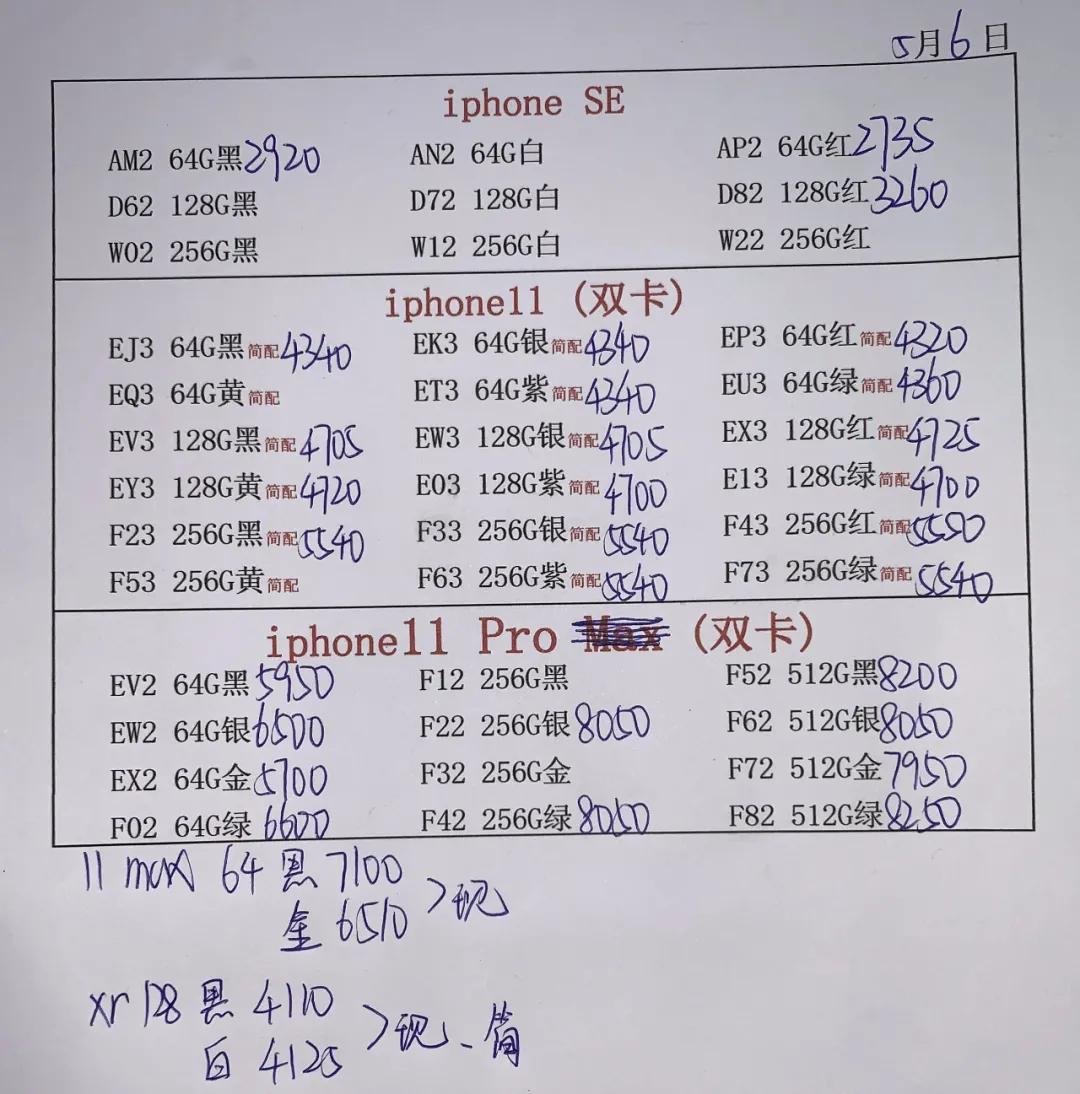 5月6日
iphone SE
AM2 64G黑2920 AN2 64G白 AP2 64G红2735
D62 128G黑 D72 128G白 D82 128G红3260
W02 256G黑 W12 256G白 W22 256G红
iphone11 (双卡)
EJ3 64G黑简配4340 EK3 64G银简配4340 EP3 64G红简配4320
EQ3 64G黄简配 ET3 64G紫简配4340 EU3 64G绿简配4360
EV3 128G黑简配4705 EW3 128G银简配4705 EX3 128G红简配4725
EY3 128G黄简配4720 E03 128G紫简配4700 E13 128G绿简配4700
F23 256G黑简配5540 F33 256G银简配5540 F43 256G红简配5550
F53 256G黄简配 F63 256G紫简配5540 F73 256G绿简配5540
iphone11 Pro Max (双卡)
EV2 64G黑5950 F12 256G黑 F52 512G黑8200
EW2 64G银6500 F22 256G银8050 F62 512G银8050
EX2 64G金5700 F32 256G金 F72 512G金7950
F02 64G绿6600 F42 256G绿8050 F82 512G绿8250
11 max 64 黑 7100
金 6510 >现
xr 128 黑 4110
白 4125 >现、简